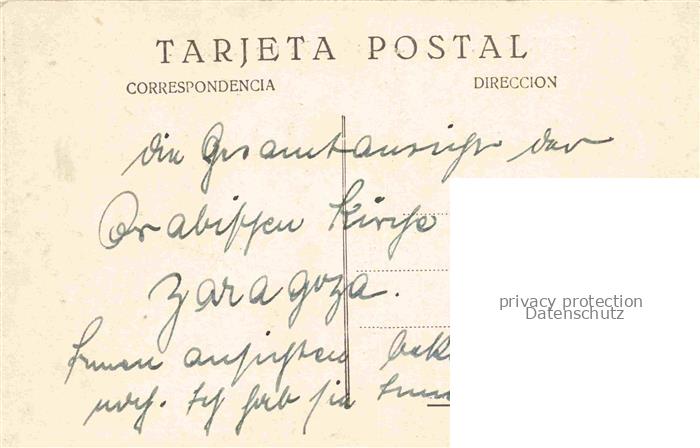 TARJETA POSTAL
CORRESPONDENCIA DIRECCION
die Gesamtansicht der
Arabischen Kirche
Zaragoza.
Innenansichten
noch. Ich hab sie
privacy protection
Datenschutz